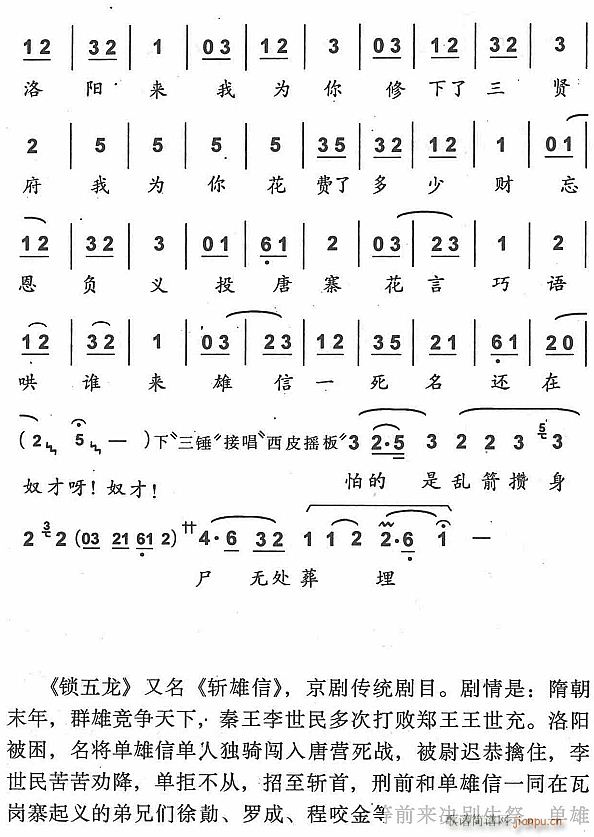 12 | 32 | 1 | 03 | 12 | 3 | 03 | 12 | 32 | 3
洛 阳 来 我 为 你 修 下了 三 贤
2 | 5 | 5 | 5 | 5 | 35 | 32 | 12 | 1 | 01
府 我 为 你 花 费了 多 少 财 忘
12 | 32 | 3 | 01 | 61 | 2 | 03 | 23 | 1 | 2
恩 负 义 投 唐 寨 花 言 巧 语
12 | 32 | 1 | 03 | 23 | 12 | 35 | 21 | 61 | 20
哄 谁 来 雄 信 一 死 名 还 在
(2 5 —)下“三锤”接唱“西皮摇板”3 2·5 3 2 2 5 3 3
奴才呀!奴才! 怕的 是乱箭攒身
2 3 2 (03 21 61 2) 廿 4·6 32 1 1 2 2·6 1 —
尸 无处葬 埋
《锁五龙》又名《斩雄信》,京剧传统剧目。剧情是:隋朝
末年,群雄竞争天下,秦王李世民多次打败郑王王世充。洛阳
被困,名将单雄信单人独骑闯入唐营死战,被尉迟恭擒住,李
世民苦苦劝降,单拒不从,招至斩首,刑前和单雄信一同在瓦
岗寨起义的弟兄们徐勋、罗成、程咬金等等前来决别生祭,单雄
歌谱简谱网
jianpu.cn